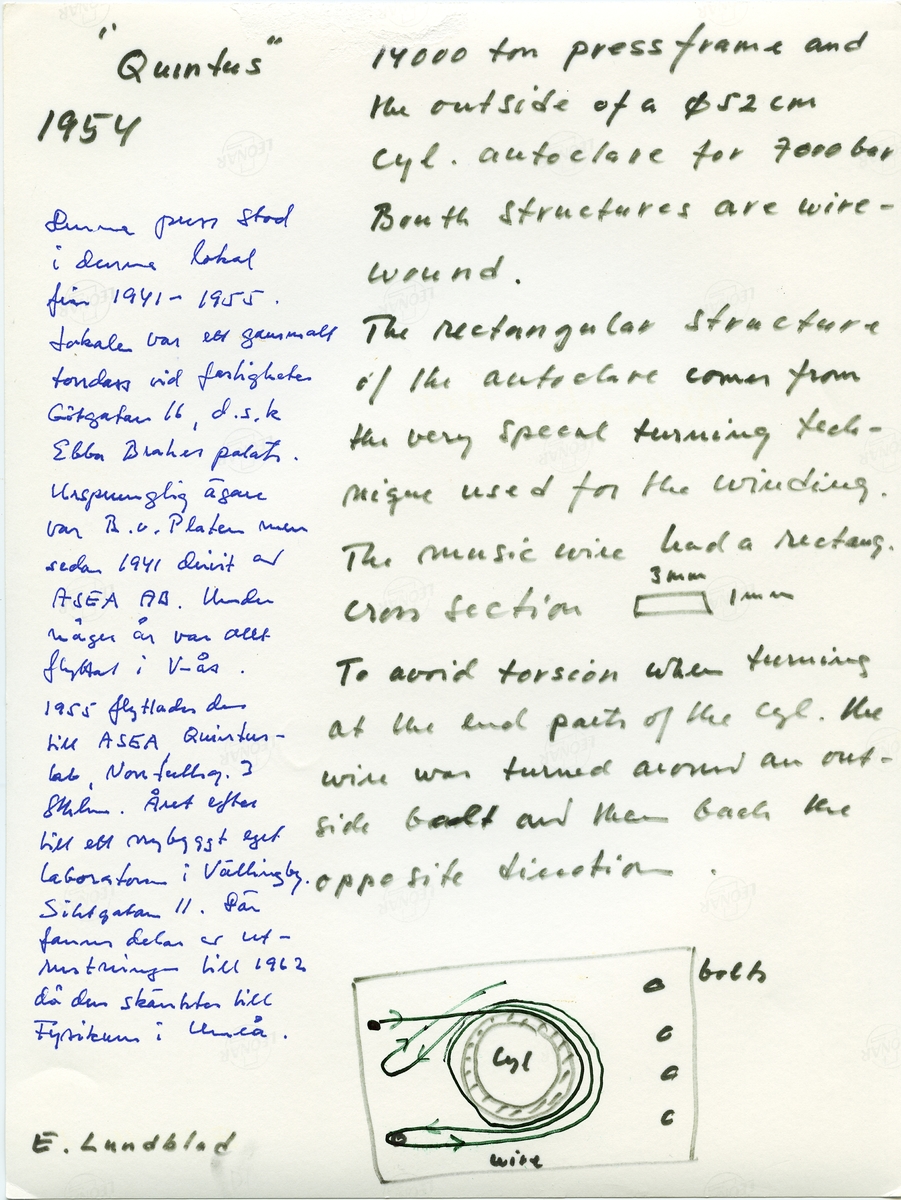 "Quintus"
1954
Denna press stod
i denna lokal
från 1941 - 1955.
Lokalen var ett gammalt
tordass vid fastigheten
Götgatan 16, d.s.k
Ebba Brahes palats.
Ursprunglig ägare
var B.v. Platen men
sedan 1941 drivit av
ASEA AB. Under
några år var allt
flyttat i V-ås.
1955 flyttades den
till ASEA Quintus-
lab, Norrtullsg. 3
Sthlm. Året efter
till ett nybyggt eget
laboratorium i Vällingby.
Siktgatan 11. Där
fanns delar av ut-
rustningen till 1962
då den skänktes till
Fysikum i Umeå.
E. Lundblad
14000 ton press frame and
the outside of a ø 52 cm
cyl. autoclave for 7000 bar
Bouth structures are wire-
wound.
The rectangular structure
of the autoclave comes from
the very specal turning tech-
nique used for the winding.
The music wire had a rectang.
cross section 3mm 1mm
To avoid torsion when turning
at the end parts of the cyl. the
wire was turned around an out-
side bolt and then back the
opposite direction.
bolts
Cyl
wire